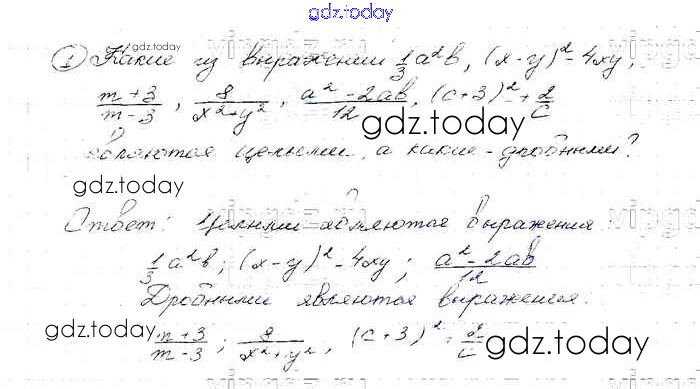 gdz.today
1 Какие из выражений 1/3 a²b, (x-y)² - 4xy,
gdz.today
m+3/m-3, 8/x²+y², a²-2ab/12, (c+3)² + 2/c
gdz.today
являются целыми, а какие - дробными?
gdz.today
Ответ: Целыми являются выражения
1/3 a²b; (x-y)² - 4xy; a²-2ab/12
Дробными являются выражения:
gdz.today
m+3/m-3; 8/x²+y², (c+3)² + 2/c
gdz.today